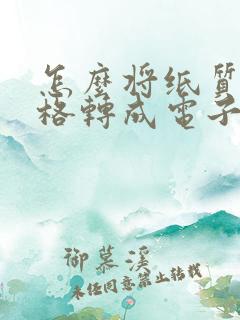 怎麼將纸質
格轉成電子
御慕溪
未经同意禁止转载